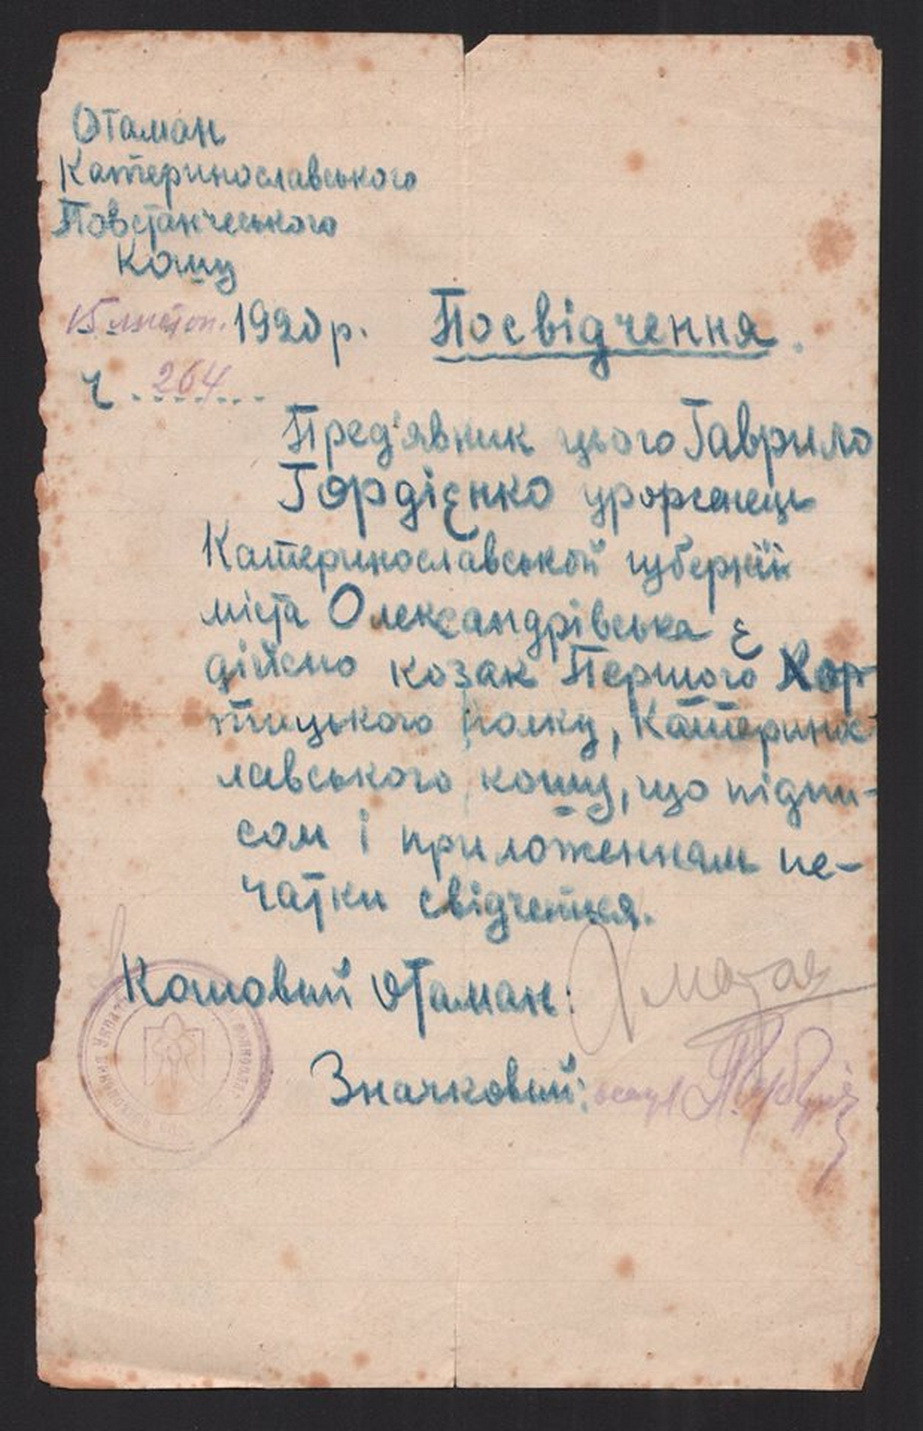 Отаман
Катеринославського
Повстанчеського
Кошу
15 листоп. 1920 р. Посвідчення.
Ч. 264
Пред'явник цього Гаврило
Гордієнко урорженець
Катеринославськой губернії
міста Олександрівська є
дійсно козак Першого Хор
тицького полку, Катеринос
лавського кошу, що підпи-
сом і приложенням пе-
чатки свідчеться.
Кошовий Отаман: Хмара
Значковий: осаул